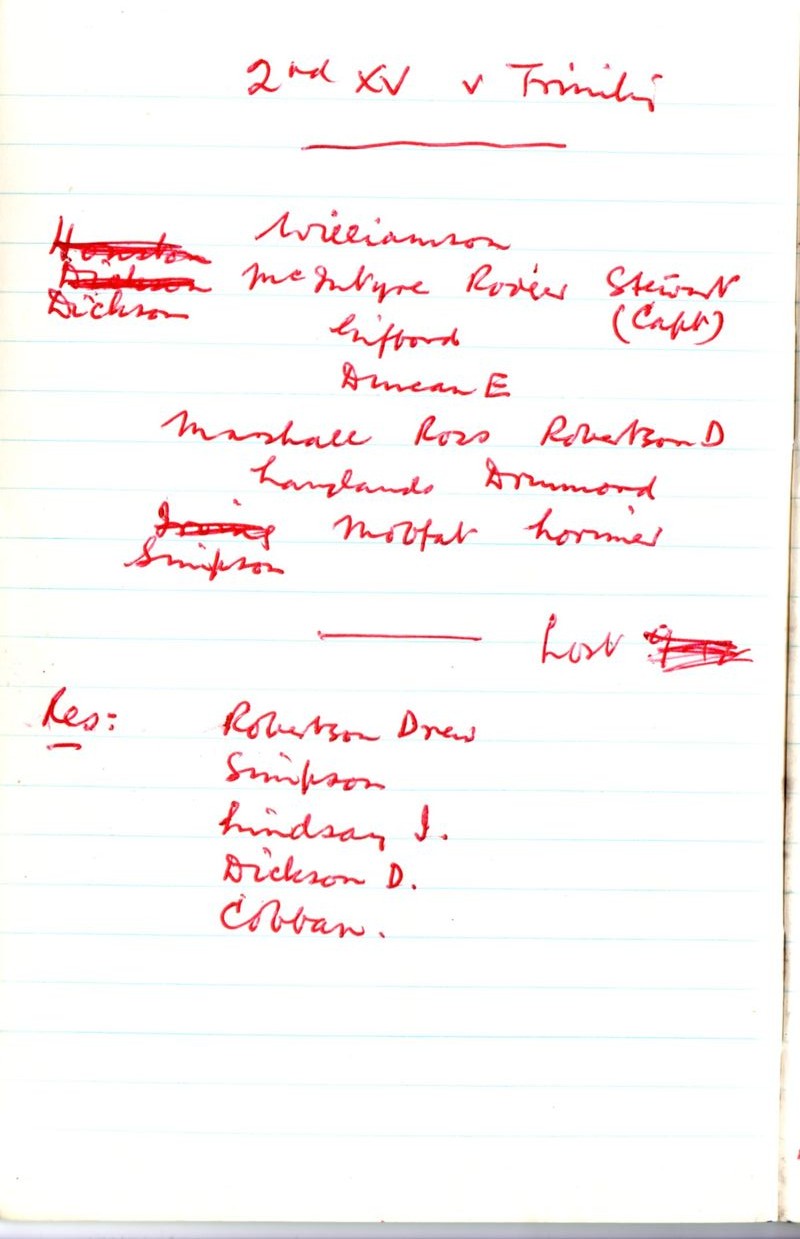 2nd XV v Trinity
Williamson
Houston
Dickson McIntyre Rodger Stewart
Dickson (Capt)
Gifford
Duncan E
Marshall Ross Robertson D
Langlands Drummond
Irving Moffat Lorimer
Simpson
Lost
Res: Robertson Drew
Simpson
Lindsay I.
Dickson D.
Cobban.